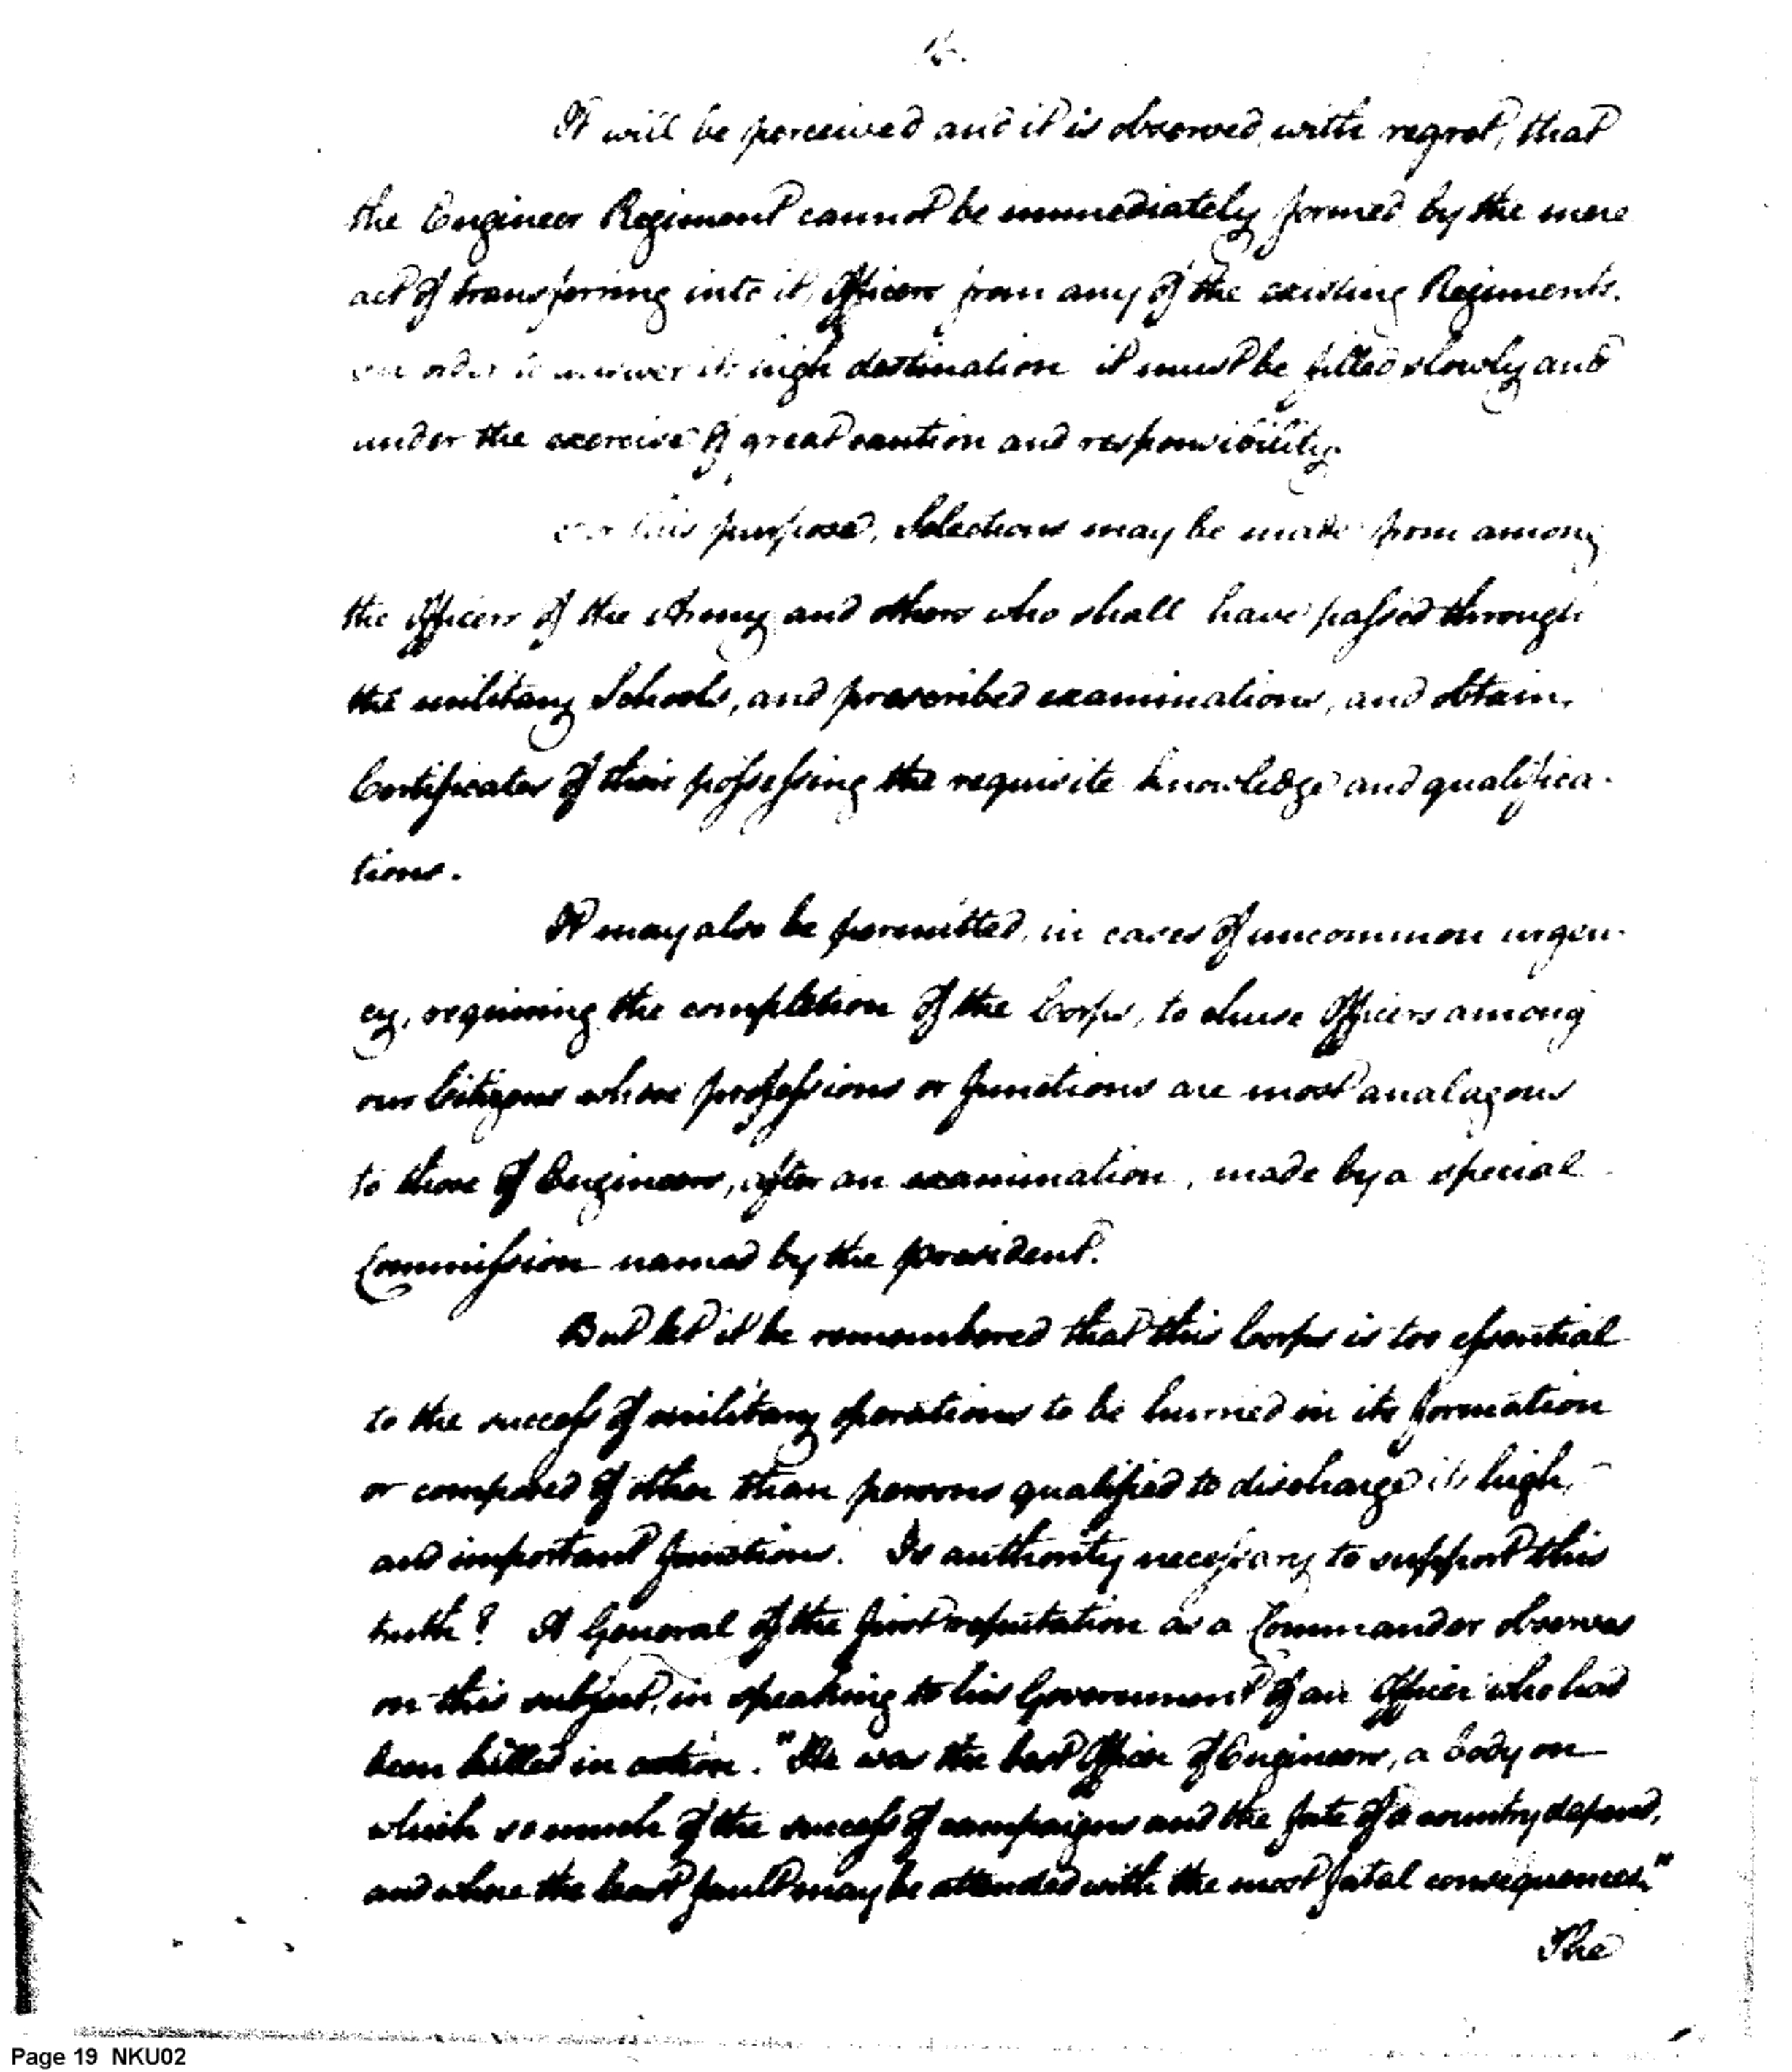 It will be perceived and it is observed, with regret, that
the Engineer Regiment cannot be immediately formed by the mere
act of transferring into it, Officers from any of the existing Regiments.
order to answer its high destination it must be filled slowly and
under the exercise of great caution and responsibility.
this purpose, Selections may be made from among
the Officers of the Army and others who shall have passed through
the military Schools, and prescribed examinations, and obtain
Certificates of their possessing the requisite knowledge and qualifica-
tions.
It may also be permitted, in cases of uncommon urgen-
cy, requiring the completion of the Corps, to chuse Officers among
our Citizens whose professions or functions are most analagous
to those of Engineers, after an examination, made by a special
Commission named by the president.
But let it be remembered that this Corps is too essential
to the success of military operations to be hurried in its formation
or composed of other than persons qualified to discharge its high,
and important functions. Is authority necessary to support this
truth? A General of the first reputation as a Commander observes
on this subject, in speaking to his Government of an Officer who had
been killed in action. "He was the best Officer of Engineers, a body on
which so much of the success of campaigns and the fate of a country depend,
and where the least fault may be attended with the most fatal consequences."
The
Page 19 NKU02